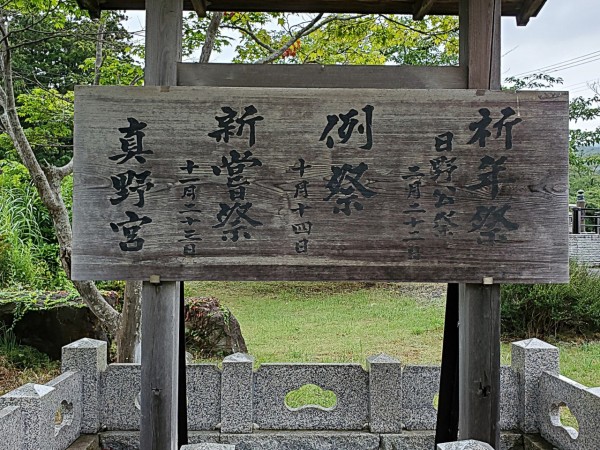 祈年祭
日野公祭
二月二十二日
例祭
十月十四日
新嘗祭
十一月二十三日
真野宮